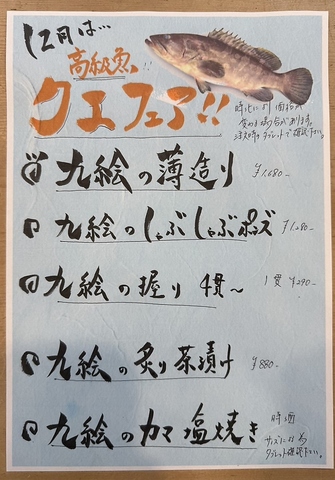 12月は…
高級魚!!
クエフェア!!
時化により価格が
変わる場合があります。
注文時タブレットで確認下さい。
九絵の薄造り ¥1,680-
九絵のしゃぶしゃぶポン酢 ¥1,280-
九絵の握り 4貫〜 1貫 ¥290-
九絵の炙り茶漬け ¥880-
九絵のカマ塩焼き 時価
サイズによる為
タブレット確認下さい。